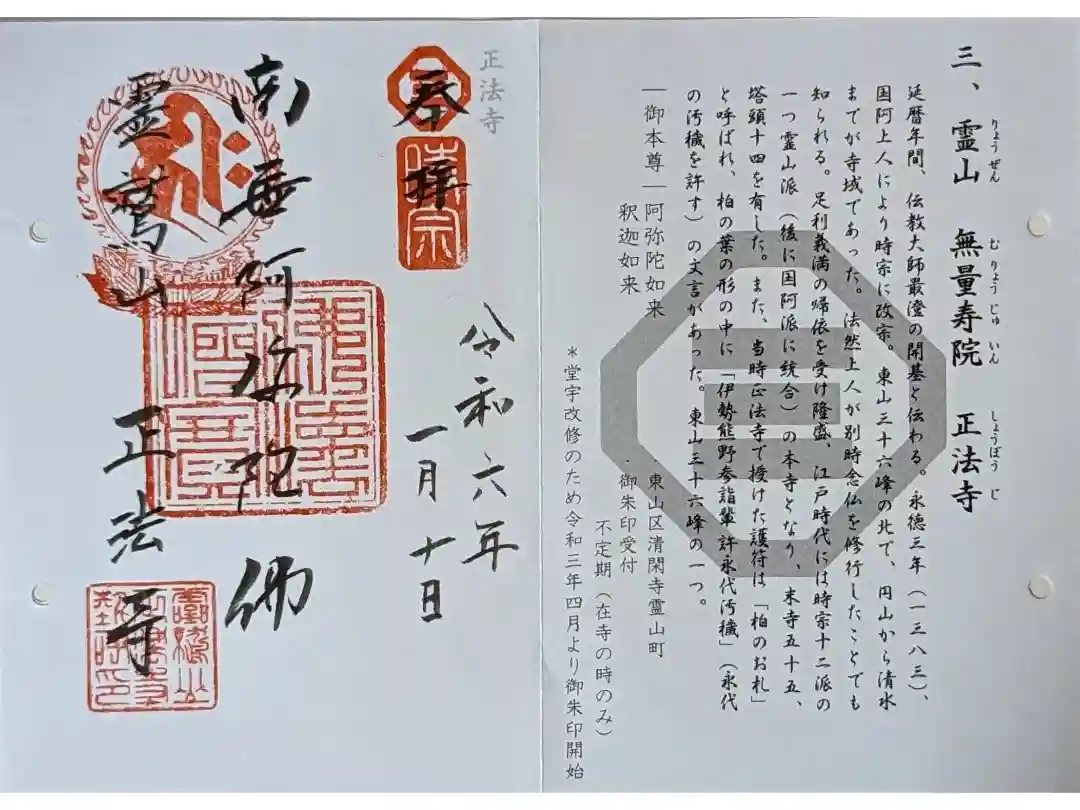 三、霊山 無量寿院 正法寺
りょうぜん むりょうじゅいん しょうぼうじ
延暦年間、伝教大師最澄の開基と伝わる。永徳三年(一三八三)、
国阿上人により時宗に改宗。東山三十六峰の北で、円山から清水
までが寺域であった。法然上人が別時念仏を修行したことでも
知られる。足利義満の帰依を受け隆盛、江戸時代には時宗十二派の
一つ霊山派(後に国阿派に統合)の本寺となり、末寺五十五、
塔頭十四を有した。また、当時正法寺で授けた護符は「柏のお札」
と呼ばれ、柏の葉の形の中に「伊勢熊野参詣輩許永代汚穢」(永代
の汚穢を許す)の文言があった。東山三十六峰の一つ。
―御本尊―阿弥陀如来
釈迦如来
東山区清閑寺霊山町
・御朱印受付
不定期(在寺の時のみ)
*堂宇改修のため令和三年四月より御朱印開始
正法寺
奉拝
時宗
令和六年
一月十日
南無阿弥陀佛
霊鷲山 正法寺